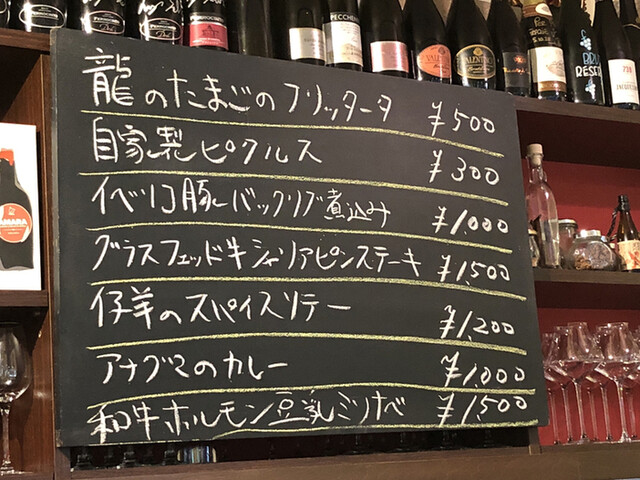 龍のたまごのフリッタータ ¥500
自家製ピクルス ¥300
イベリコ豚バックリブ煮込み ¥1,000
グラスフェッド牛シャリアピンステーキ ¥1,500
仔羊のスパイスソテー ¥1,200
アナグマのカレー ¥1,000
和牛ホルモン豆乳ミソナベ ¥1,500